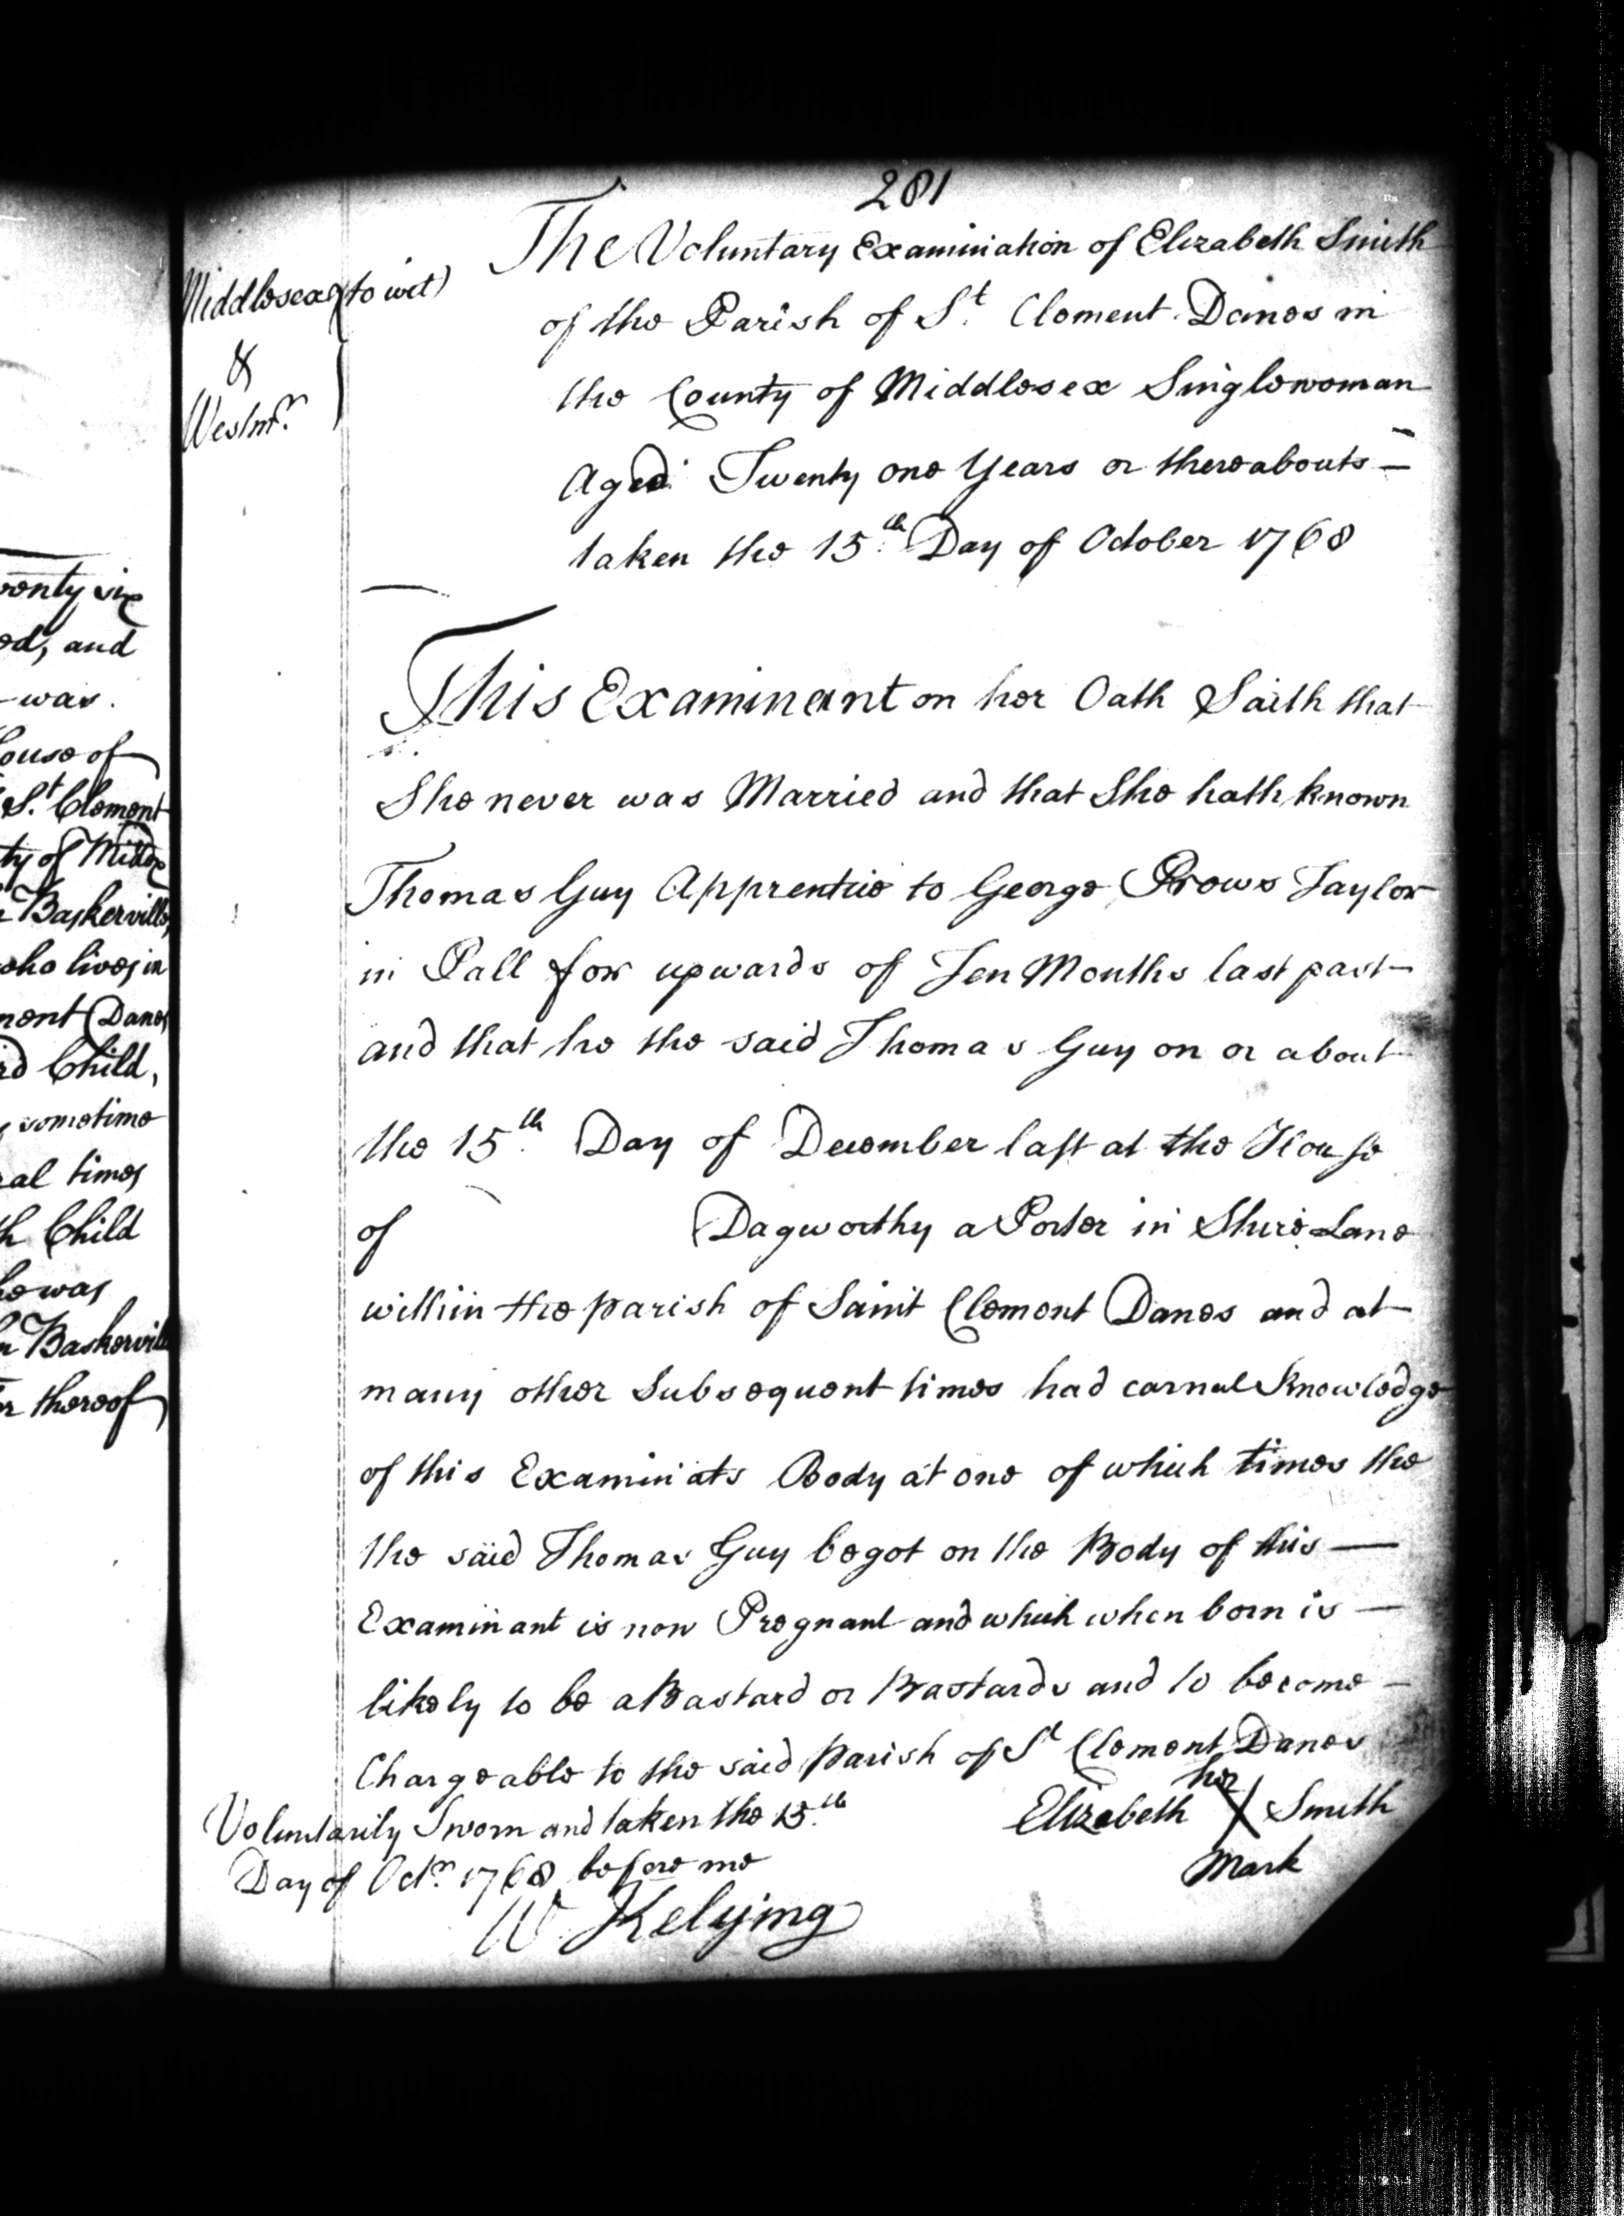 281
Middlesex (to wit)
&
Westmr.
The Voluntary Examination of Elizabeth Smith
of the Parish of St. Clement Danes in
the County of Middlesex Singlewoman
Aged Twenty one Years or thereabouts —
taken the 15th. Day of October 1768
This Examinant on her Oath Saith that
She never was Married and that She hath known
Thomas Guy Apprentice to George Prows Taylor
in Pall for upwards of Ten Months last past
and that he the said Thomas Guy on or about
the 15th. Day of December last at the House
of Dagworthy a Porter in Shire Lane
within the parish of Saint Clement Danes and at
many other Subsequent times had carnal Knowledge
of this Examinats Body at one of which times the
the said Thomas Guy begot on the Body of this —
Examinant is now Pregnant and which when born is —
likely to be a Bastard or Bastards and to become —
Chargeable to the said parish of St Clement Danes
Voluntarily Sworn and taken the 15.th
Day of Octr. 1768 before me
W Kelying
her
Elizabeth X Smith
Mark
wenty six
ed, and
was.
House of
St. Clement
ty of Middx
Baskerville,
who lives in
ment Danes
Child,
sometime
al times
h Child
he was
Baskerville
r thereof